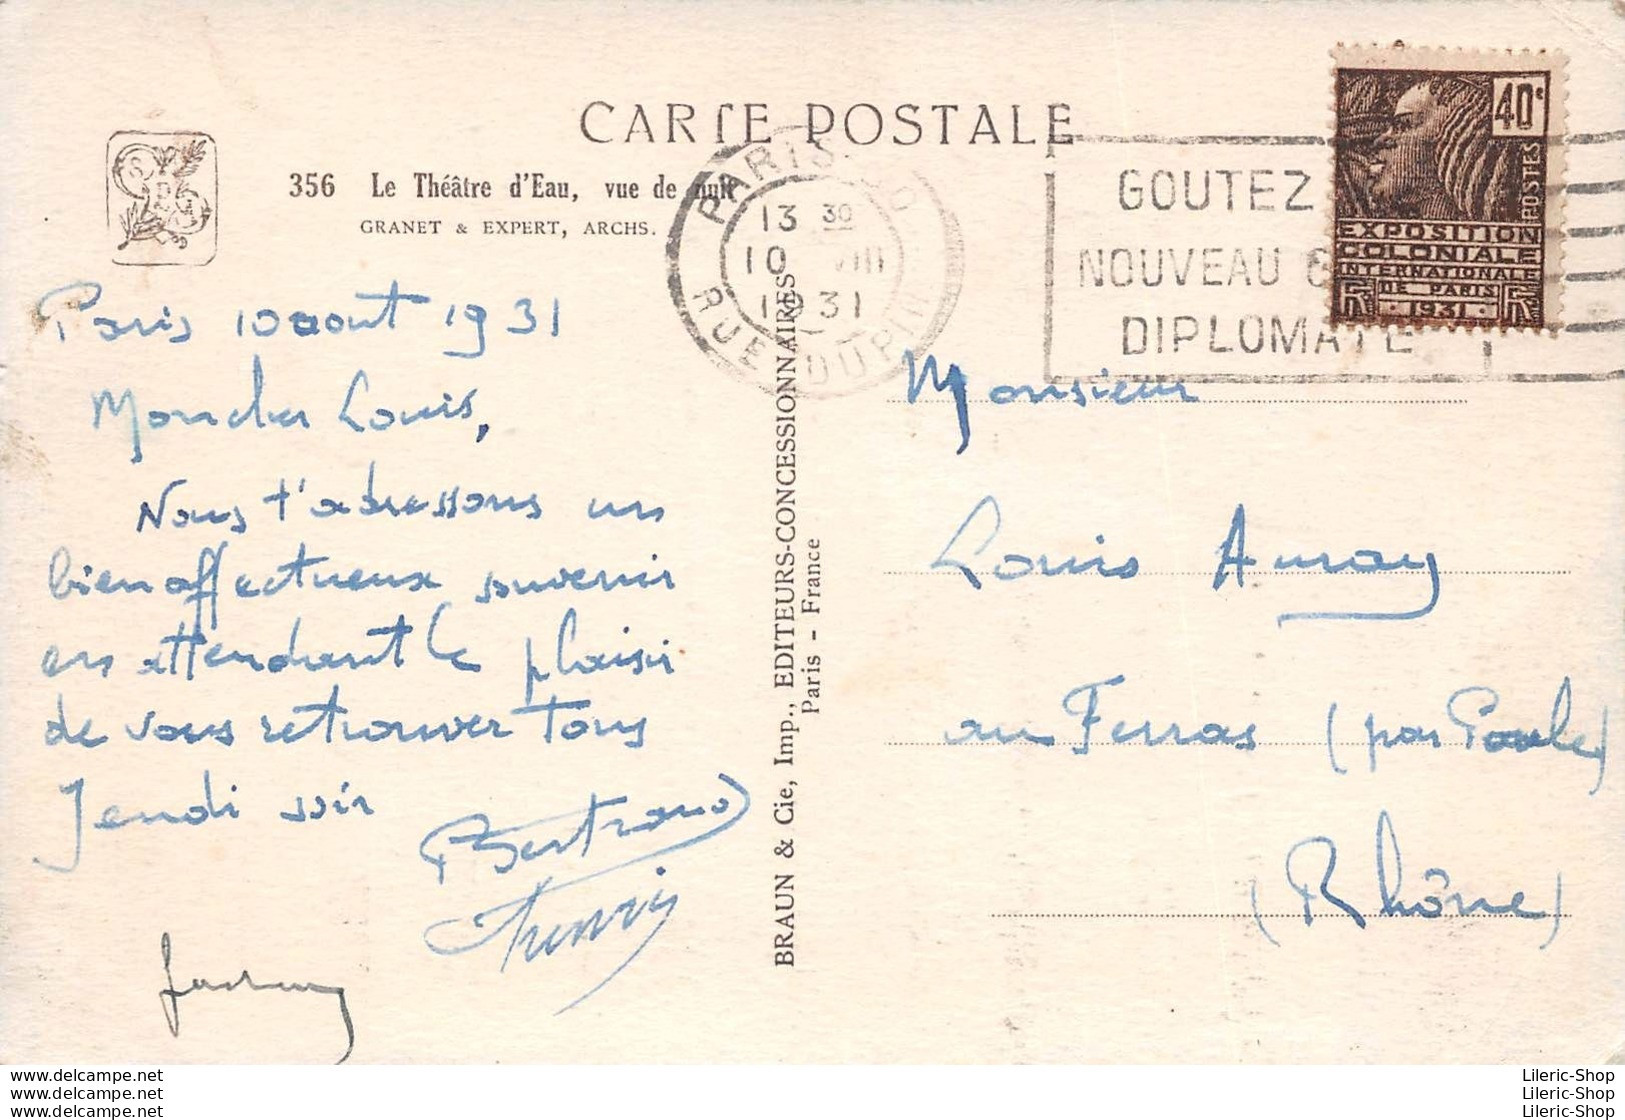 CARTE POSTALE
356 Le Théâtre d'Eau, vue de nuit
GRANET & EXPERT, ARCHS.
PARIS
13 30
10 VIII
1931
RUE DUPIN
GOUTEZ
NOUVEAU
DIPLOMATE
40c
POSTES
EXPOSITION
COLONIALE
INTERNATIONALE
DE PARIS
1931
Paris 10 aout 1931
Mon cher Louis,
Nous t'adressons un
bien affectueux souvenir
en attendant le plaisir
de vous retrouver tous
Jeudi soir
Bertrand
Henri
BRAUN & Cie, Imp., EDITEURS-CONCESSIONNAIRES
Paris - France
Monsieur
Louis Auray
au Ferras (par Poule)
(Rhône)
www.delcampe.net
www.delcampe.net
www.delcampe.net
Lileric-Shop
Lileric-Shop
Lileric-Shop